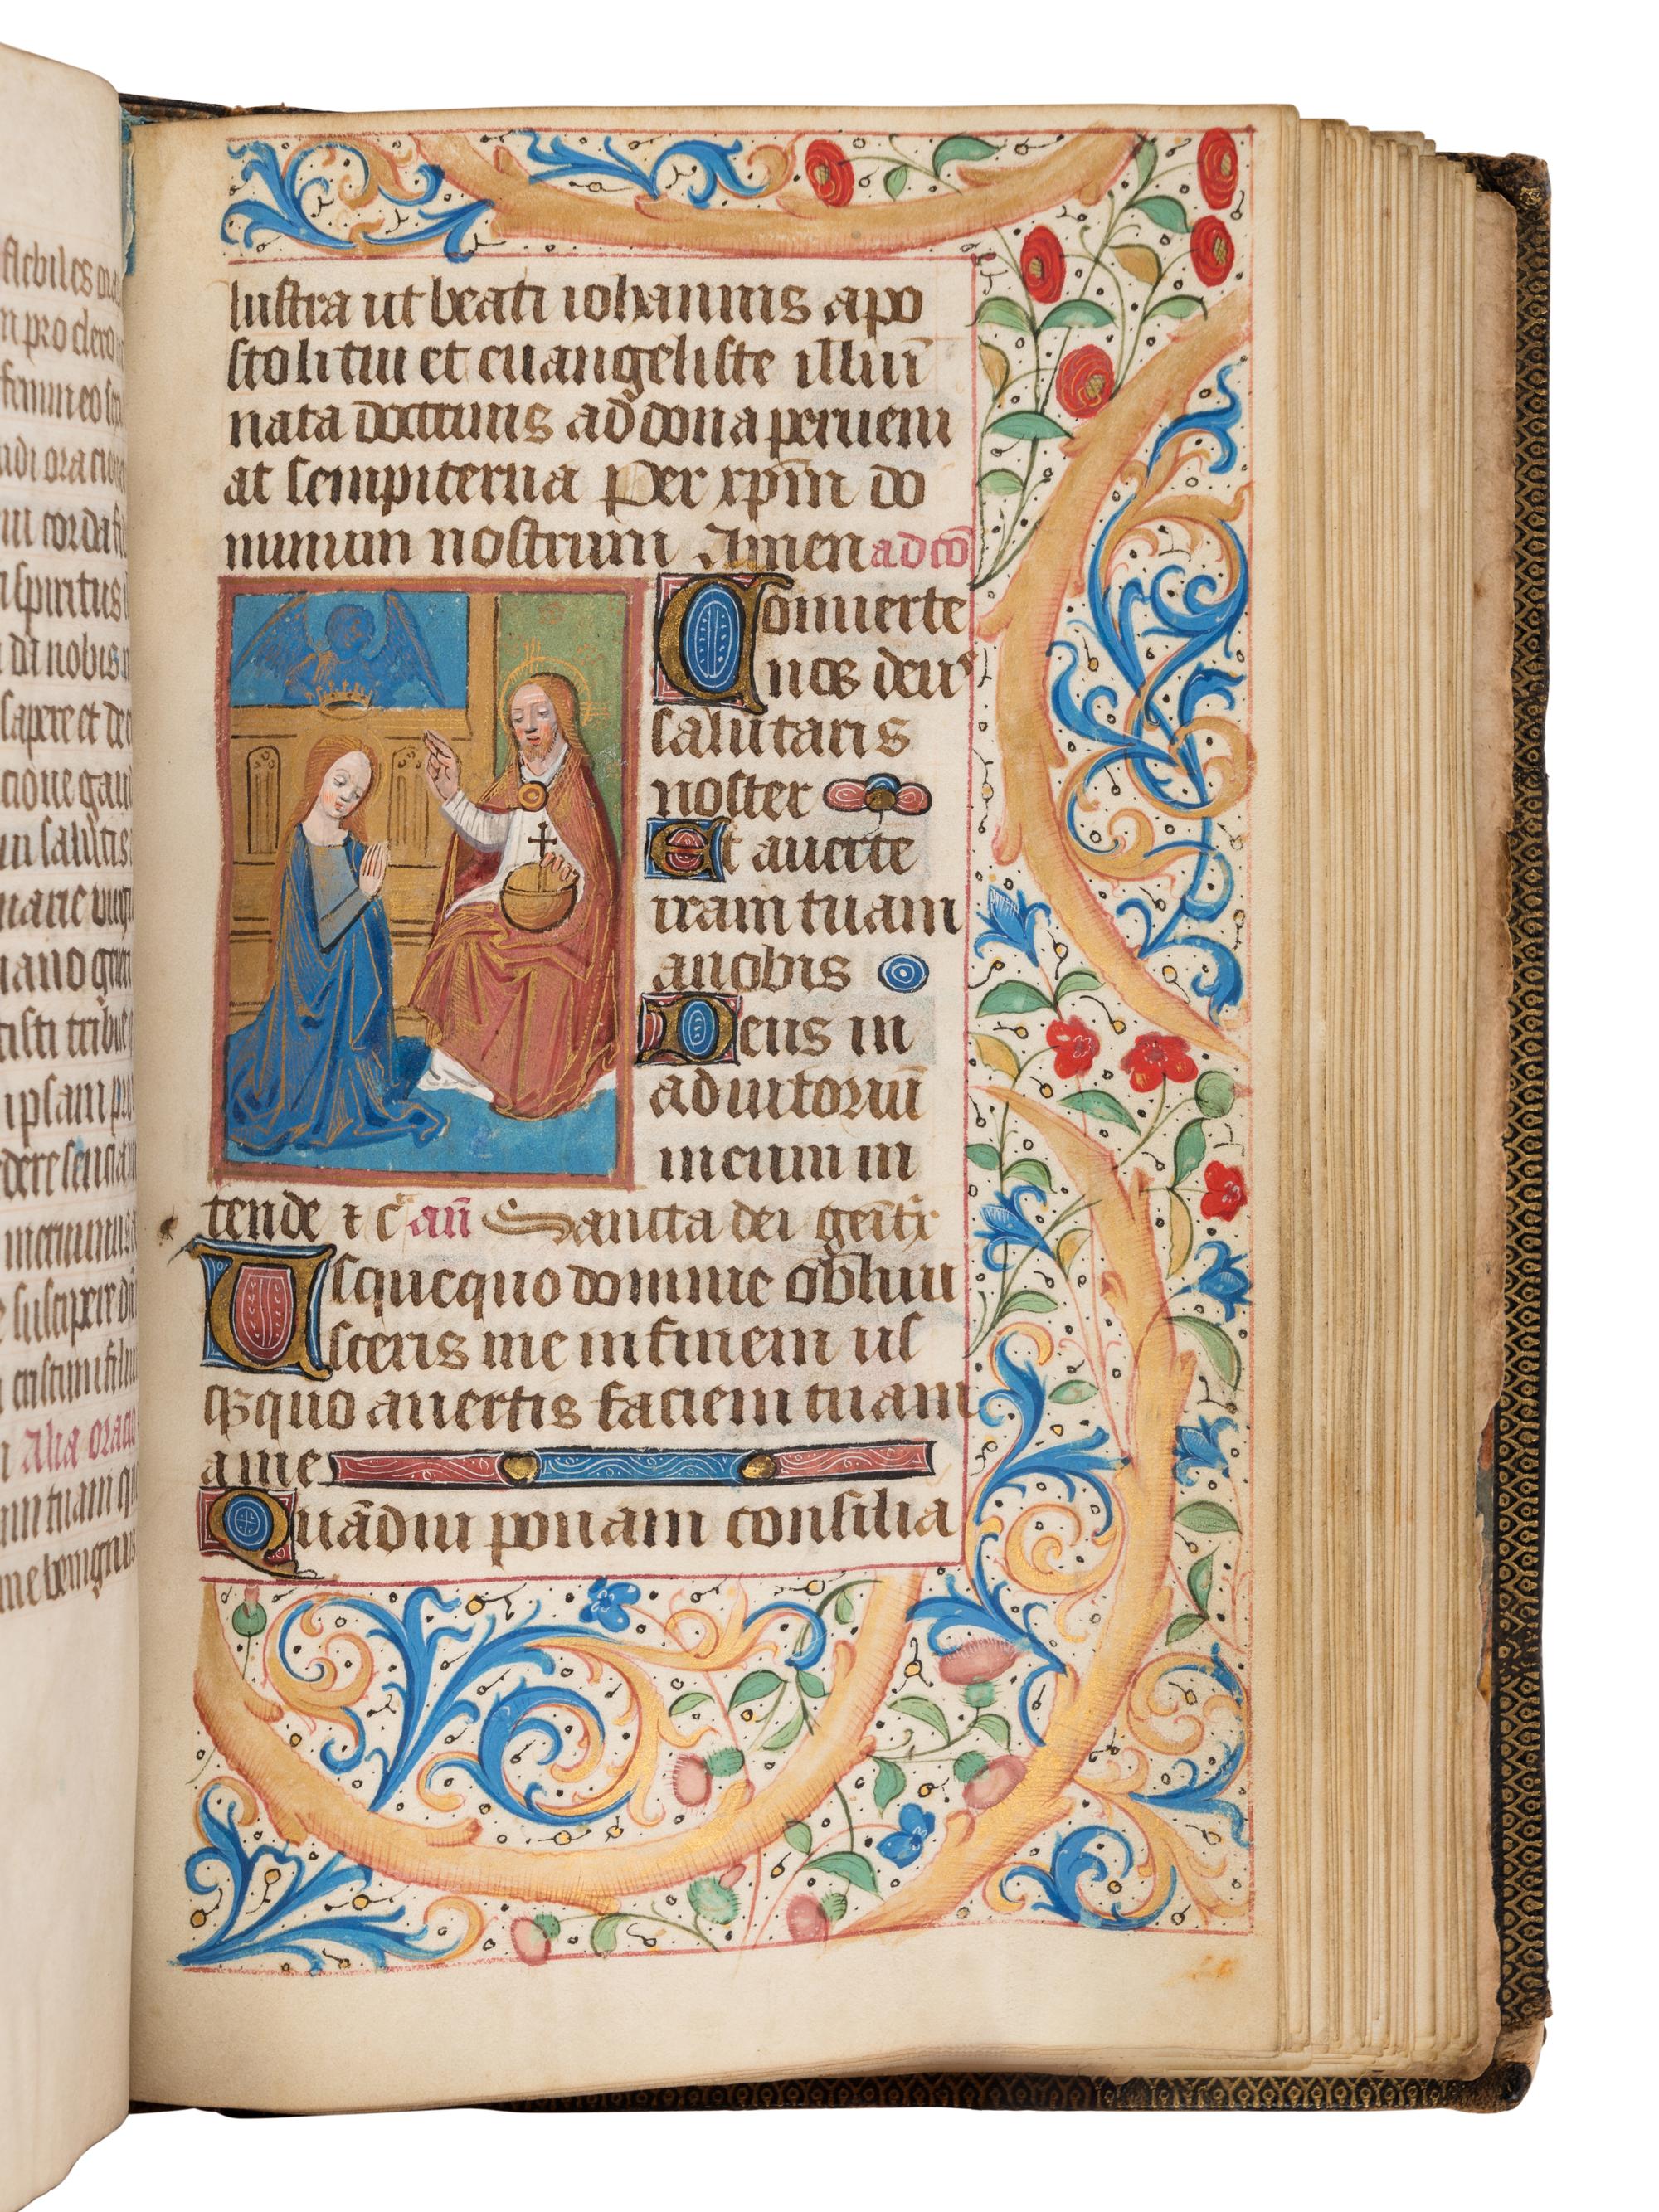 flebiles
n pro clero
femineo
ndi oracio
m corda
spiritus
da nobis
sapere et
cione gau
m salutis
marie virg
mano gene
cisti tribue
ipsam pro
dere sencia
meruimus
suscipere
cristum filiu
Alia oracio
tuam
me benignus
lustra ut beati iohannis apo
stoli tui et euangeliste illuī
nata doctrinis ad dona perueni
at sempiterna Per xpm̄ do
minum nostrum Amen ad cō
Conuerte
nos deus
salutaris
noster
Et auerte
iram tuam
anobis
Deus in
adiutoriū
meum in
tende ⁊ cͣ an̄ Sancta dei genitͥx
Usquequo domine obliui
sceris me in finem us
qꝫquo auertis faciem tuam
a me
Quādiu ponam consilia